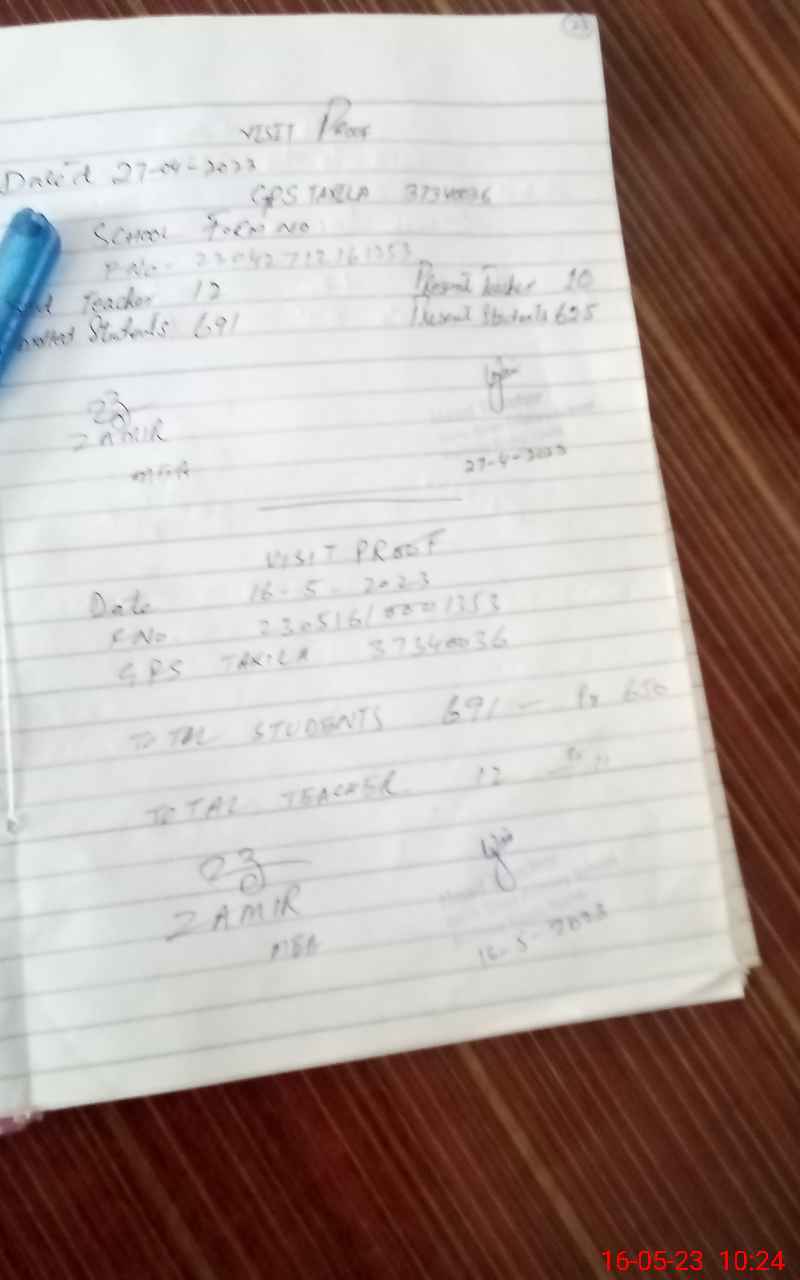 23
VISIT PROOF
Dated 27-04-2023
GPS TAXILA 37340036
SCHOOL FORM NO
F.No- 23042712161353
Teacher 12 Present Teacher 10
Students 691 Present Students 625
ZAMIR
MEA
27-4-2023
VISIT PROOF
Date 16-5-2023
F.No 23051610001353
GPS TAXILA 37340036
TOTAL STUDENTS 691 - Pr 650
TOTAL TEACHER 12
ZAMIR
MEA
16-5-2023
16-05-23 10:24